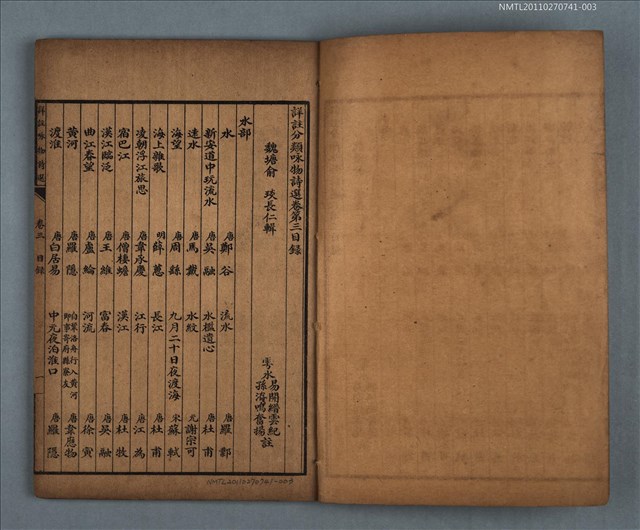 NMTL20110270741-003
詳註分類咏物詩選卷第三目錄
魏塘俞 琰長仁輯
粤水 易開縉雲紀 孫洊鳴奮揚 註
水部
水 唐鄭谷 流水 唐羅鄴
新安道中玩流水 唐吳融 水檻遣心 唐杜甫
逃水 唐馬戴 水紋 元謝宗可
海望 唐周繇 九月二十日夜渡海 宋蘇軾
海上雜歌 明薛蕙 長江 唐杜甫
凌朝浮江旅思 唐韋承慶 江行 唐江為
宿巴江 唐僧棲蟾 漢江 唐杜牧
漢江臨泛 唐王維 富春 唐吳融
曲江春望 唐盧綸 河流 唐徐夤
黃河 唐羅隱 自鞏洛舟行入黃河即事寄府縣寮友 唐韋應物
渡淮 唐白居易 中元夜泊淮口 唐羅隱
詳註咏物詩選
卷三 目錄
NMTL20110270741-003